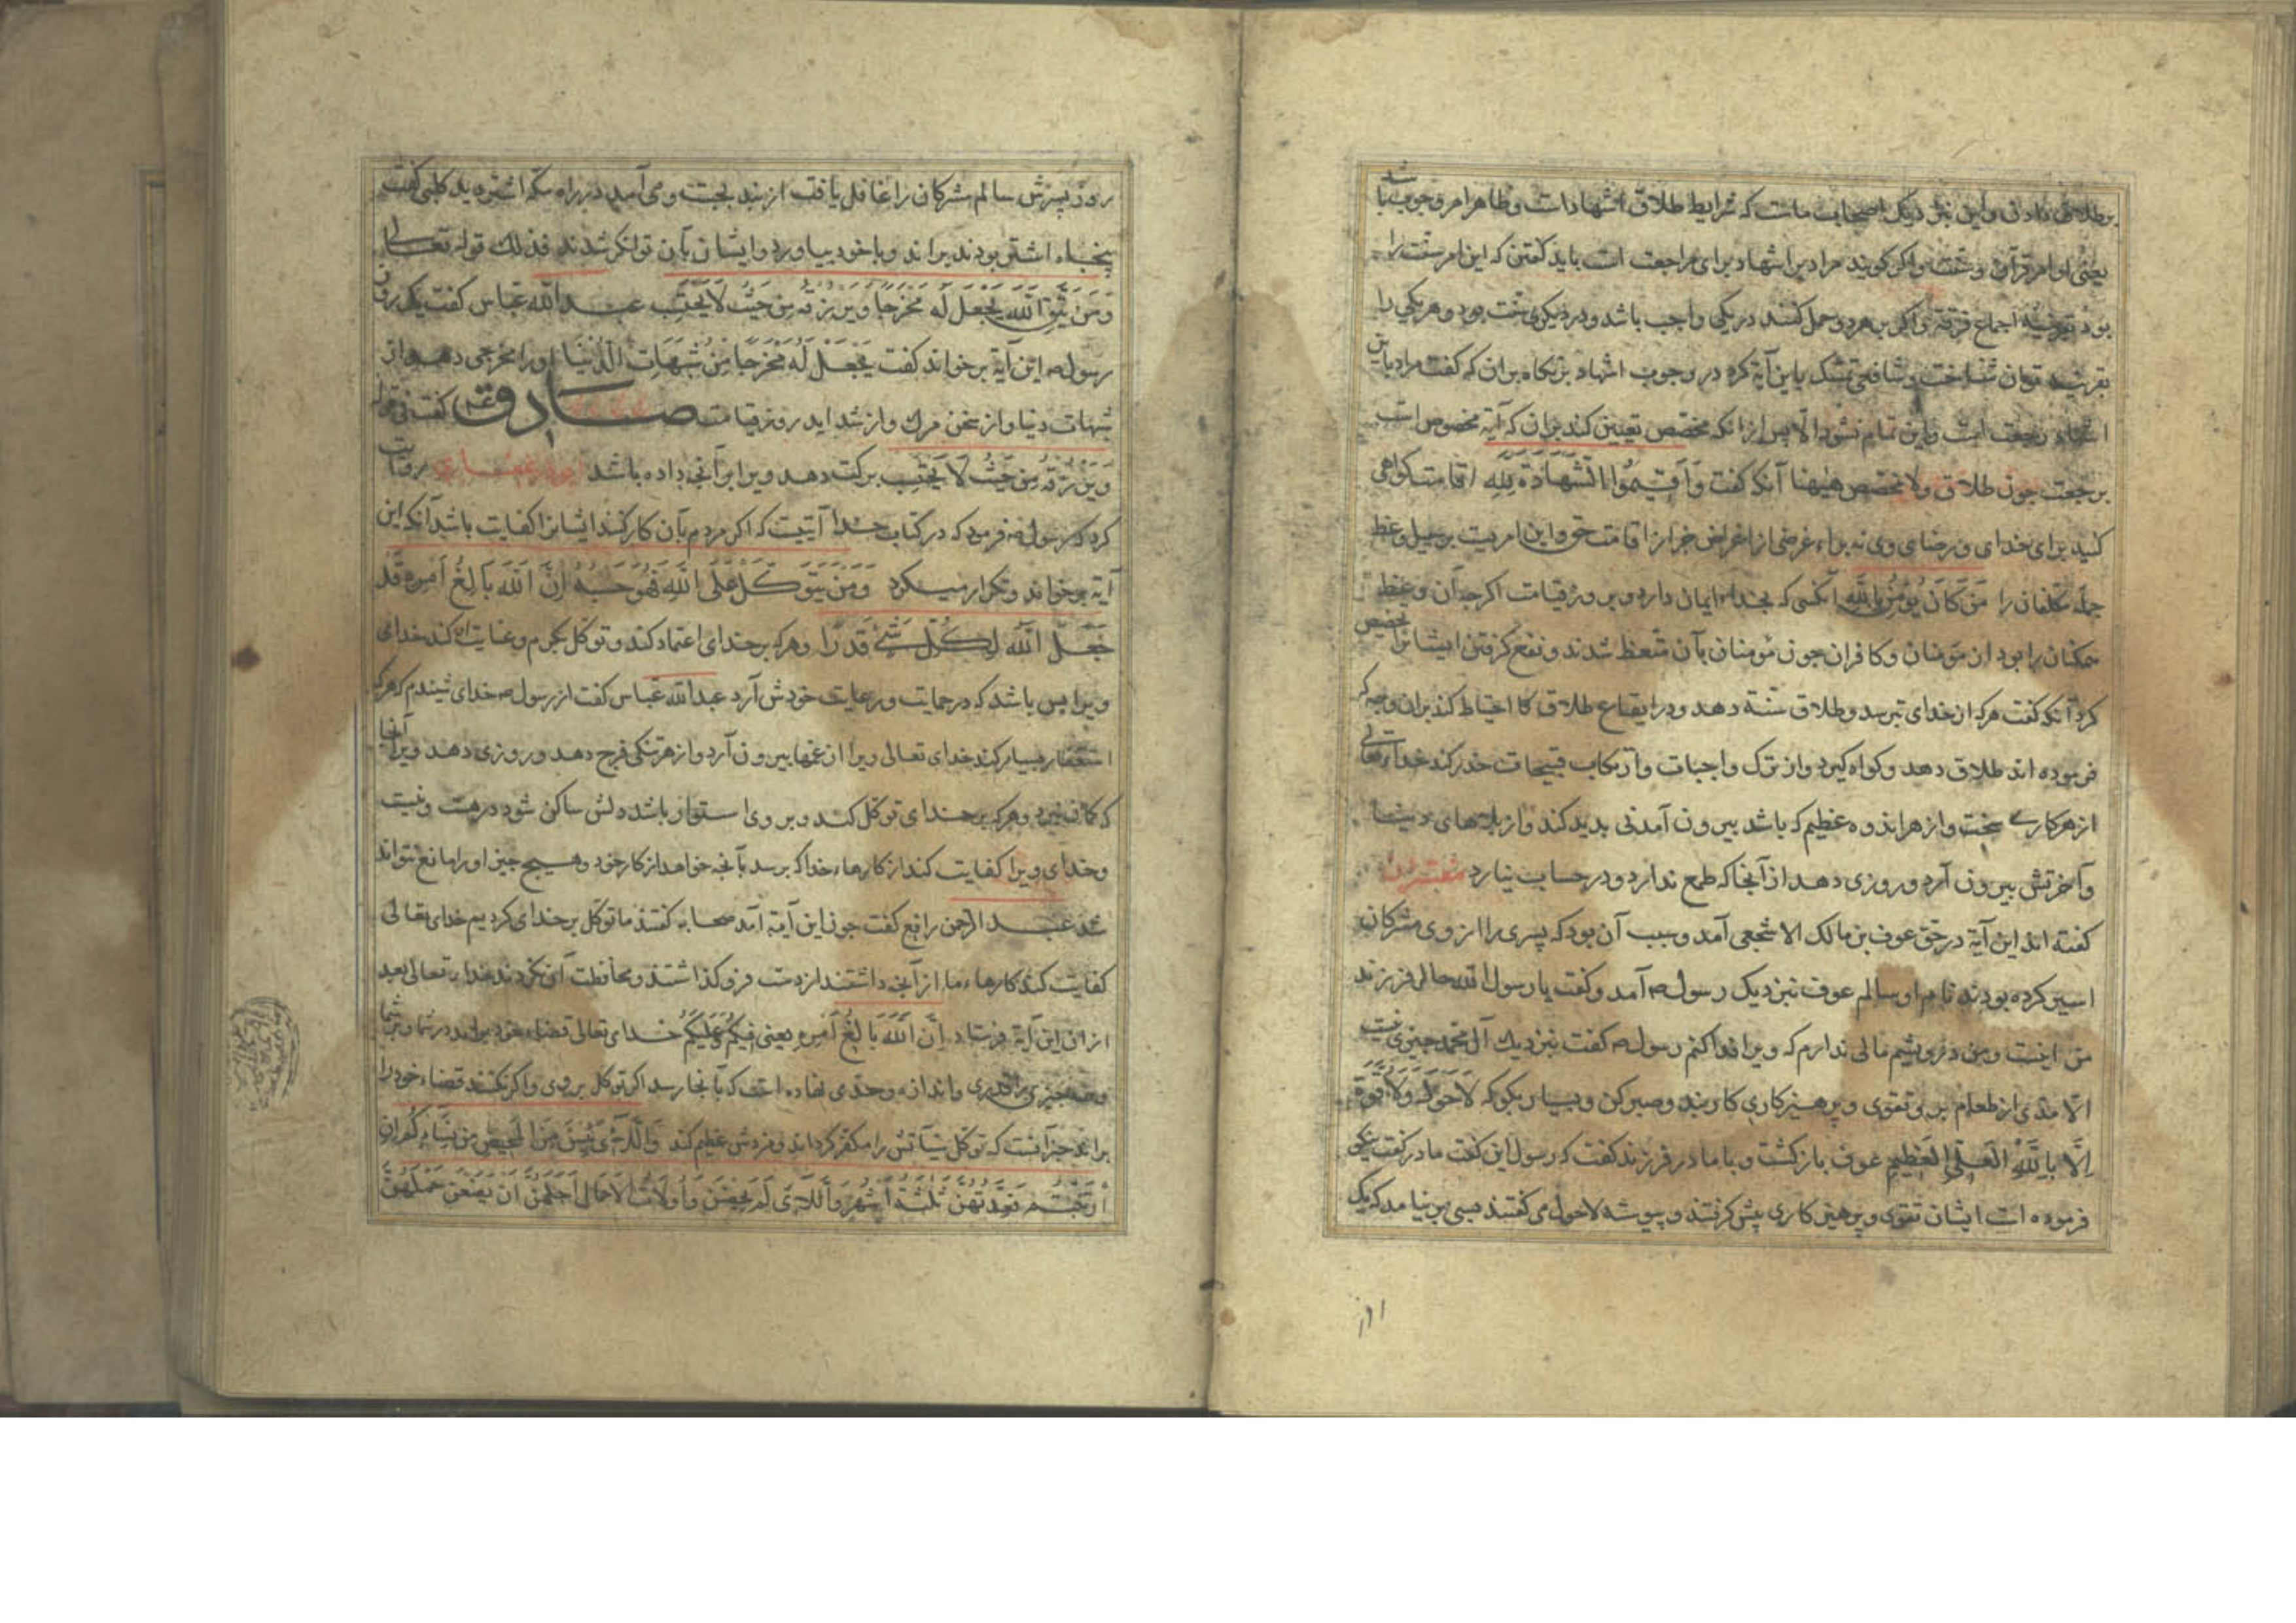 بر طلاق دادن و این نزدیک اصحاب ماست که شرایط طلاق اشهادات و ظاهر امر وجوب باشد
یعنی اوامر قرآن و سنت و اگر کویند مراد بدین اشهاد برای مراجعت است باید کفتن که این امر سنت را
بود بقرینهٔ اجماع فرقه و اکر بر هر دو حمل کنند در یکی واجب باشد و در دیکری سنت بود و هر یکی را
بقرینه توان شناخت و شافعی تمسک باین آیة کرد در وجوب اشهاد بر نکاه بران که کفت مراد باین
اشهاد رجعت است و این تمام نشود الا پس از آنکه مخصص تعیین کند بران که آیه مخصوص است
برجعت جون طلاق ولا مخصص هیهنا آنکه کفت وَاَقیمُوا الشَّهادَةَ لِلّهِ اقامت کواهی
کنید برای خدای و رضای وی نه براء غرضی از اغراض جز از اقامت حق و این امریست بر سبیل وعظ
جمله مکلفان را مَن کَانَ یُؤمِنُ بِاللّهِ آنکس که بخداء ایمان دارد و بروز قیامت اکرجه آن وعظ
همکنان را بود از مؤمنان و کافران جون مؤمنان بآن متعظ شدند و نفع کرفتن ایشانرا تخصیص
کرد آنکه کفت هرکه از خدای بترسد و طلاق سنة دهد و در ایقاع طلاق کا احتیاط کند بران وجه که
فرموده اند طلاق دهد و کواه کیرد و از ترک واجبات و ارتکاب قبیحات حذر کند خداء تعالی
از هر کاری سخت و از هر اندوه عظیم که باشد بیرون آمدنی بدید کند و از بلاهای دنیا
و آخرتش بیرون آرد و روزی دهد از آنجا که طمع ندارد و در حساب نیارد مفسّران
کفته اند این آیة در حق عوف بن مالک الاشجعی آمد و سبب آن بود که پسری را از وی مشرکان
اسیر کرده بودند نام او سالم عوف بنزدیک رسول صہ آمد و کفت یا رسول الله حال فرزند
من اینست و من درویشم مالی ندارم که ویرا فدا کنم رسول صہ کفت بنزدیک آل محمد جیزی نیست
الا مدی از طعام برو تقوی و پرهیزکاری کار بند و صبر کن و بسیار بکو که لاَحَولَ وَلاَ قُوَّةَ
اِلَّا بِاللّهِ العَلِیِّ العَظِیمِ عوف باز کشت و با مادر فرزند کفت که رسول این کفت مادر کفت نیکو
فرموده است ایشان تقوی و پرهیزکاری پیش کرفتند و پیوسته لاحول می کفتند بسی بر نیامد که یک
روز پسرش سالم مشرکان را غافل یافت از بند بجست و می آمد در راه مکه اشتر دید کلبی کفت
پنجاه اشتر بودند براند و با خود بیاورد و ایشان بآن توانکر شدند فذلک قوله تعالی
وَمَن یَتَّقِ اللّهَ یَجعَل لَه مَخرَجًا وَیَرزُقهُ مِن حَیثُ لَا یَحتَسِب عبد الله عباس کفت یک روز
رسول صہ این آیة بر خواند کفت یَجعَل لَهُ مَخرَجًا مِن شُبَهَاتِ الدُّنیَا او را مخرجی دهد از
شبهات دنیا و از سختی مرک و از شداید روز قیامت صادق ع کفت
وَیَرزُقهُ مِن حَیثُ لَا یَحتَسِب برکت دهد ویرا بر آنچه داده باشد ابوذر غفاری روایت
کرد که رسول صہ فرمود که در کتاب خدا آیتیست که اکر مردم بآن کار کنند ایشانرا کفایت باشد آنکه این
آیة بر خواند و تکرار میکرد وَمَن یَتَوَکَّل عَلَی اللّهِ فَهُوَ حَسبُهُ اِنَّ اللّهَ بَالِغُ اَمرِه قَد
جَعَلَ اللّهُ لِکُلِّ شَیءٍ قَدرًا و هرکه بر خدای اعتماد کند و توکل بکرم و عنایت او کند خدای
ویرا بس باشد که در حمایت و رعایت خودش آرد عبدالله عباس کفت از رسول صہ خدای شنیدم که هرکه
استغفار بسیار کند خدای تعالی ویرا از غمها بیرون آرد و از هر تنکی فرج دهد و روزی دهد ویرا از آنجا
که کمان نبرد و هرکه بر خدای توکل کند و بر وی استوار باشد دلش ساکن شود در هست و نیست
و خدای ویرا کفایت کند از کارهاء خدا که برسد بآنچه خواهد از کار خود و هیچ جیز او را مانع نتواند
شد عبد الرحمن رافع کفت جون این آیة آمد صحابه کفتند ما توکل بر خدای کردیم خدای تعالی
کفایت کند کارهاء ما از آنچه داشتند از دست فرو کذاشتند و محافظت آن نکردند خداء تعالی بعد
از ان این آیة فرستاد اِنَّ اللّهَ بَالِغُ اَمرِهِ یعنی فیکُم وَعَلَیکُم خدای تعالی قضاء خود براند در شما و بر شما
و هر جیزی را قدری و اندازه و حدی نهاده است که بآنجا رسد اکر توکل بر وی و اکر نکنند قضاء خود را
براند جز آنست که توکل سیآتش را مکفر کرداند و مزدش عظیم کند وَاللَّائِی یَئِسنَ مِنَ المَحِیضِ مِن نِسَاءِکُم اِنِ
ارتَبتُم فَعِدَّتُهُنَّ ثَلثَةُ اَشهُرٍ وَاللَّائِی لَم یَحِضنَ وَاُولَاتُ الاَحمَالِ اَجَلُهُنَّ اَن یَضَعنَ حَملَهُنَّ